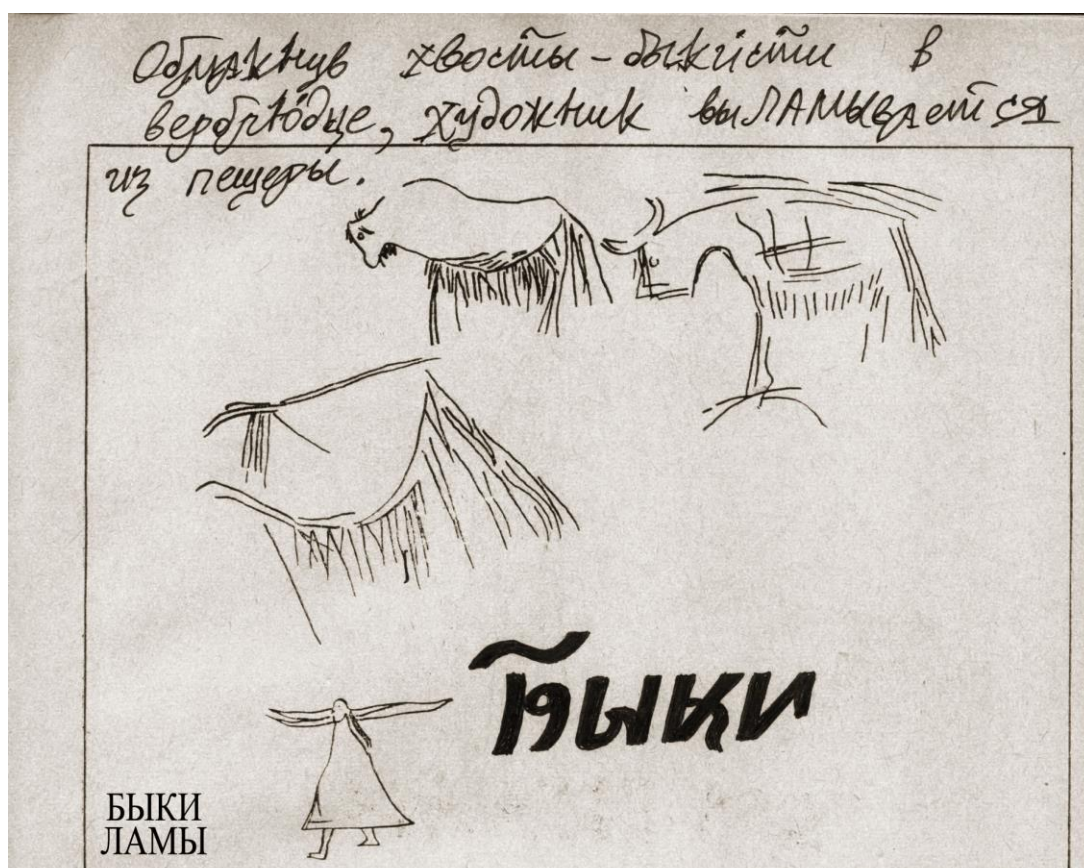 Обмакнув хвосты-быкисти в
верблюдце, художник выЛАМЫвается
из пещеры.
быки
БЫКИ
ЛАМЫ